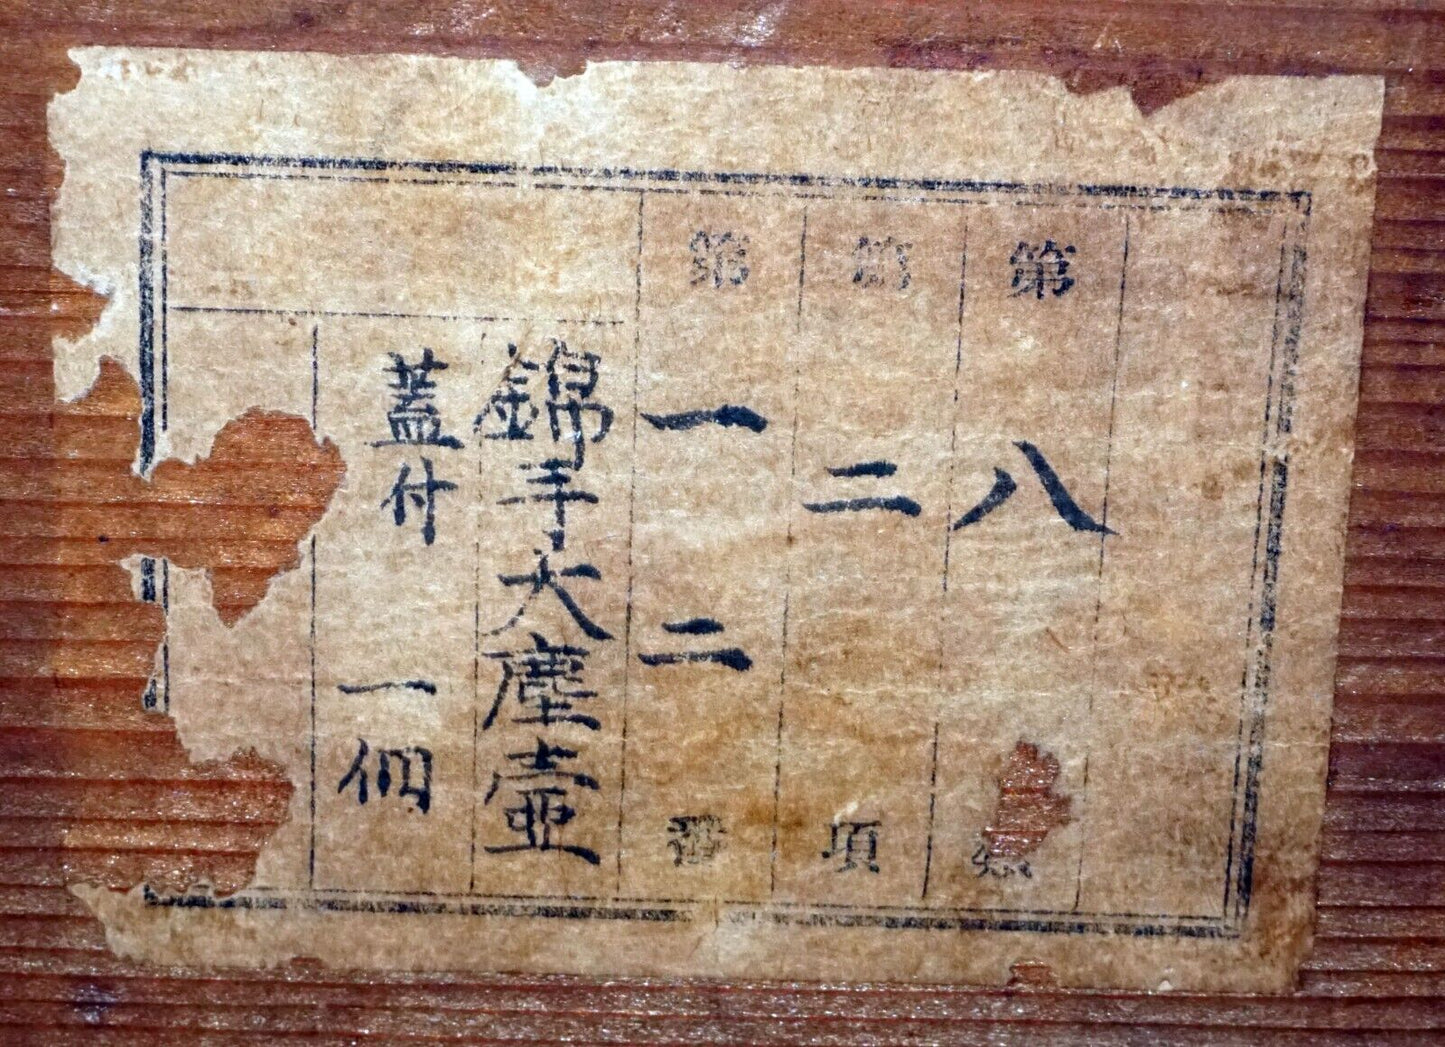 第八類
第二項
第一二番
錦手大塵壷
蓋付 一個